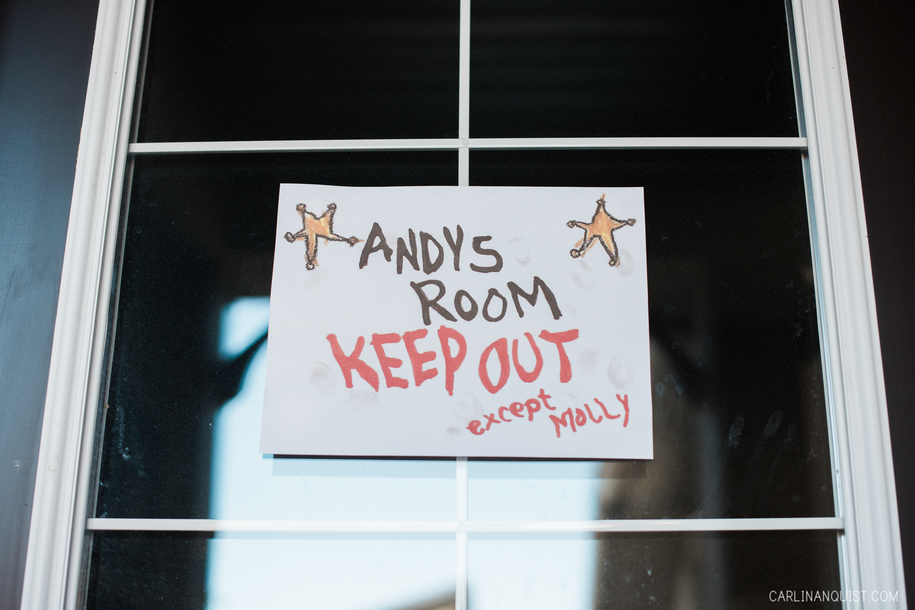 ANDYS
ROOM
KEEP OUT
except MOLLY
CARLINANQUIST.COM